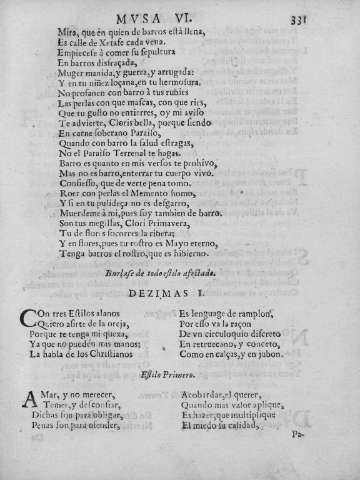 MVSA VI. 331
Mira, que en quien de barros està llena,
Es calle de Xetafe cada vena.
Empieçese à comer su sepultura
En barros disfraçada,
Muger manida, y guerra, y arrugada:
Y en tu niñez loçana, en tu hermosura.
No profanen con barro à tus rubies
Las perlas con que mascas, con que ries,
Que tu gusto no entierres, oy mi aviso
Te advierte, Cloris bella, porque siendo
En carne soberano Paraiso,
Quando con barro la salud estragas,
No el Paraiso Terrenal te hagas.
Barro es quanto en mis versos te prohivo,
Mas no es barro, enterrar tu cuerpo vivo.
Confiesso, que de verte pena tomo.
Roer con perlas el Memento homo,
Y si en tu pulideça no es desgarro,
Muerdeme à mi, pues soy tambien de barro.
Son tus megillas, Clori Primavera,
Tu de flores socorres la ribera;
Y en flores, pues tu rostro es Mayo eterno,
Tenga barros el rostro, que es hibierno.
Burlase de todo estilo afectado.
DEZIMAS I.
COn tres Estilos alanos
Quiero asirte de la oreja,
Porque te tenga mi quexa,
Ya que no pueden mis manos;
La habla de los Christianos
Es lenguage de ramplon,
Por esso va la raçon
De vn circuloquio discreto
En retruecano, y conceto,
Como en calças, y en jubon.
Estilo Primero.
AMar, y no merecer,
Temer, y desconfiar,
Dichas son para obligar,
Penas son para ofender,
Acobardar, el querer,
Quando mas valor aplique,
Es hazer, que multiplique
El miedo su calidad,
Pa-